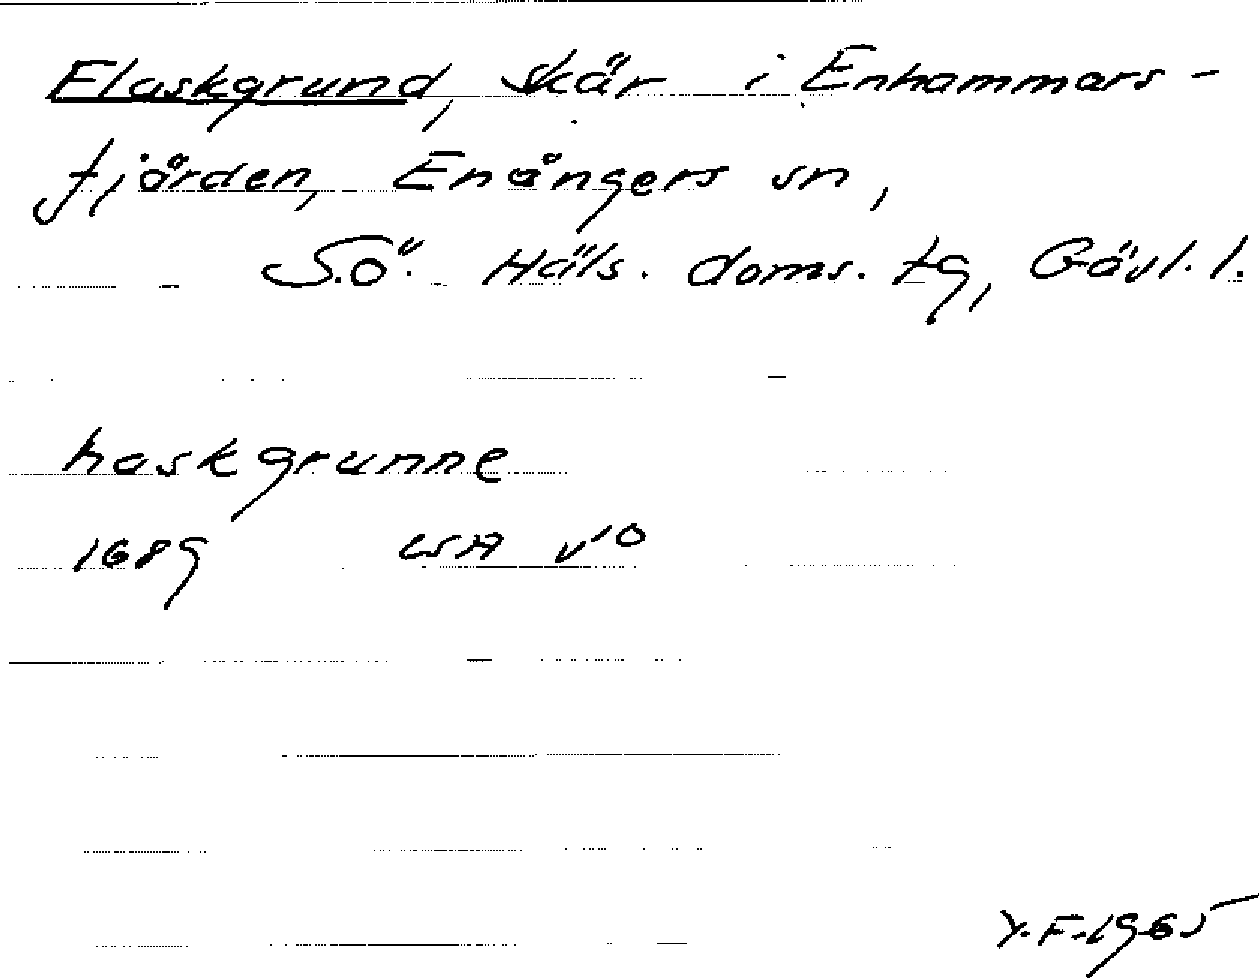 Flaskgrund, skär i Enhammars-
fjärden, Enångers sn,
S.Ö. Häls. doms. tg, Gävl. l.
haskgrunne
1689 LSA V10
Y.F. 1965